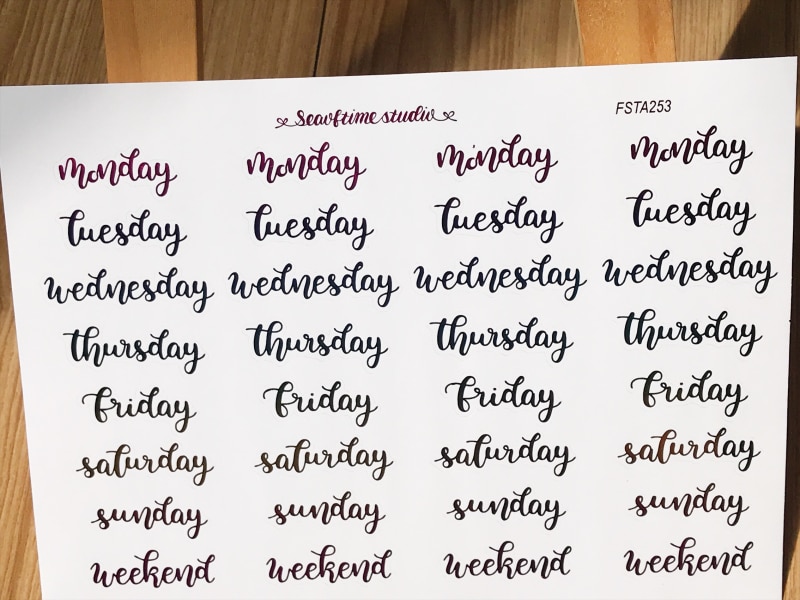 Seavftime studiv FSTA253
monday monday monday monday
tuesday tuesday tuesday tuesday
wednesday wednesday wednesday wednesday
thursday thursday thursday thursday
friday friday friday friday
saturday saturday saturday saturday
sunday sunday sunday sunday
weekend weekend weekend weekend